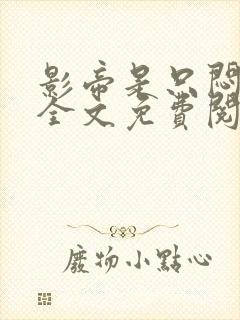 影帝是只悶
全文免費閱
廢物小點心